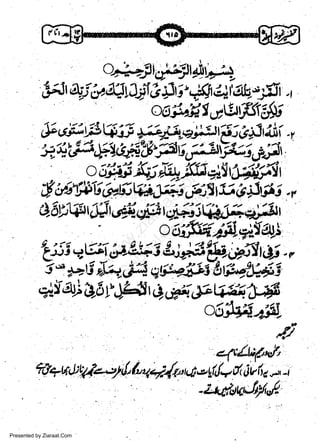 تفسیر نمونہ
۶۱۵
بِسْمِ اللّٰهِ الرَّحْمٰنِ الرَّحِيْمِ ○
۱- الٓمّٓرٰ تِلْكَ اٰيٰتُ الْكِتٰبِ وَالَّذِيْٓ اُنْزِلَ اِلَيْكَ مِنْ رَّبِّكَ الْحَقُّ
وَلٰكِنَّ اَكْثَرَ النَّاسِ لَا يُؤْمِنُوْنَ ○
۲- اَللّٰهُ الَّذِيْ رَفَعَ السَّمٰوٰتِ بِغَيْرِ عَمَدٍ تَرَوْنَهَا ثُمَّ اسْتَوٰى عَلَى
الْعَرْشِ وَسَخَّرَ الشَّمْسَ وَالْقَمَرَ كُلٌّ يَّجْرِيْ لِاَجَلٍ مُّسَمًّى يُدَبِّرُ
الْاَمْرَ يُفَصِّلُ الْاٰيٰتِ لَعَلَّكُمْ بِلِقَآءِ رَبِّكُمْ تُوْقِنُوْنَ ○
۳- وَهُوَ الَّذِيْ مَدَّ الْاَرْضَ وَجَعَلَ فِيْهَا رَوَاسِيَ وَاَنْهٰرًا وَمِنْ كُلِّ
الثَّمَرٰتِ جَعَلَ فِيْهَا زَوْجَيْنِ اثْنَيْنِ يُغْشِي الَّيْلَ النَّهَارَ اِنَّ فِيْ
ذٰلِكَ لَاٰيٰتٍ لِّقَوْمٍ يَّتَفَكَّرُوْنَ ○
۴- وَفِي الْاَرْضِ قِطَعٌ مُّتَجٰوِرٰتٌ وَّجَنّٰتٌ مِّنْ اَعْنَابٍ وَّزَرْعٌ
وَّنَخِيْلٌ صِنْوَانٌ وَّغَيْرُ صِنْوَانٍ يُّسْقٰى بِمَآءٍ وَّاحِدٍ وَ
نُفَضِّلُ بَعْضَهَا عَلٰى بَعْضٍ فِي الْاُكُلِ اِنَّ فِيْ ذٰلِكَ لَاٰيٰتٍ
لِّقَوْمٍ يَّعْقِلُوْنَ ○
ترجمہ
رحمٰن و رحیم خدا کے نام سے
۱- المر یہ (آسمانی) کتاب کی آیات ہیں اور جو کچھ تیرے پروردگار کی طرف سے تجھ پر نازل ہوا ہے حق ہے
لیکن اکثر لوگ ایمان نہیں لاتے۔
Presented by Ziaraat.Com